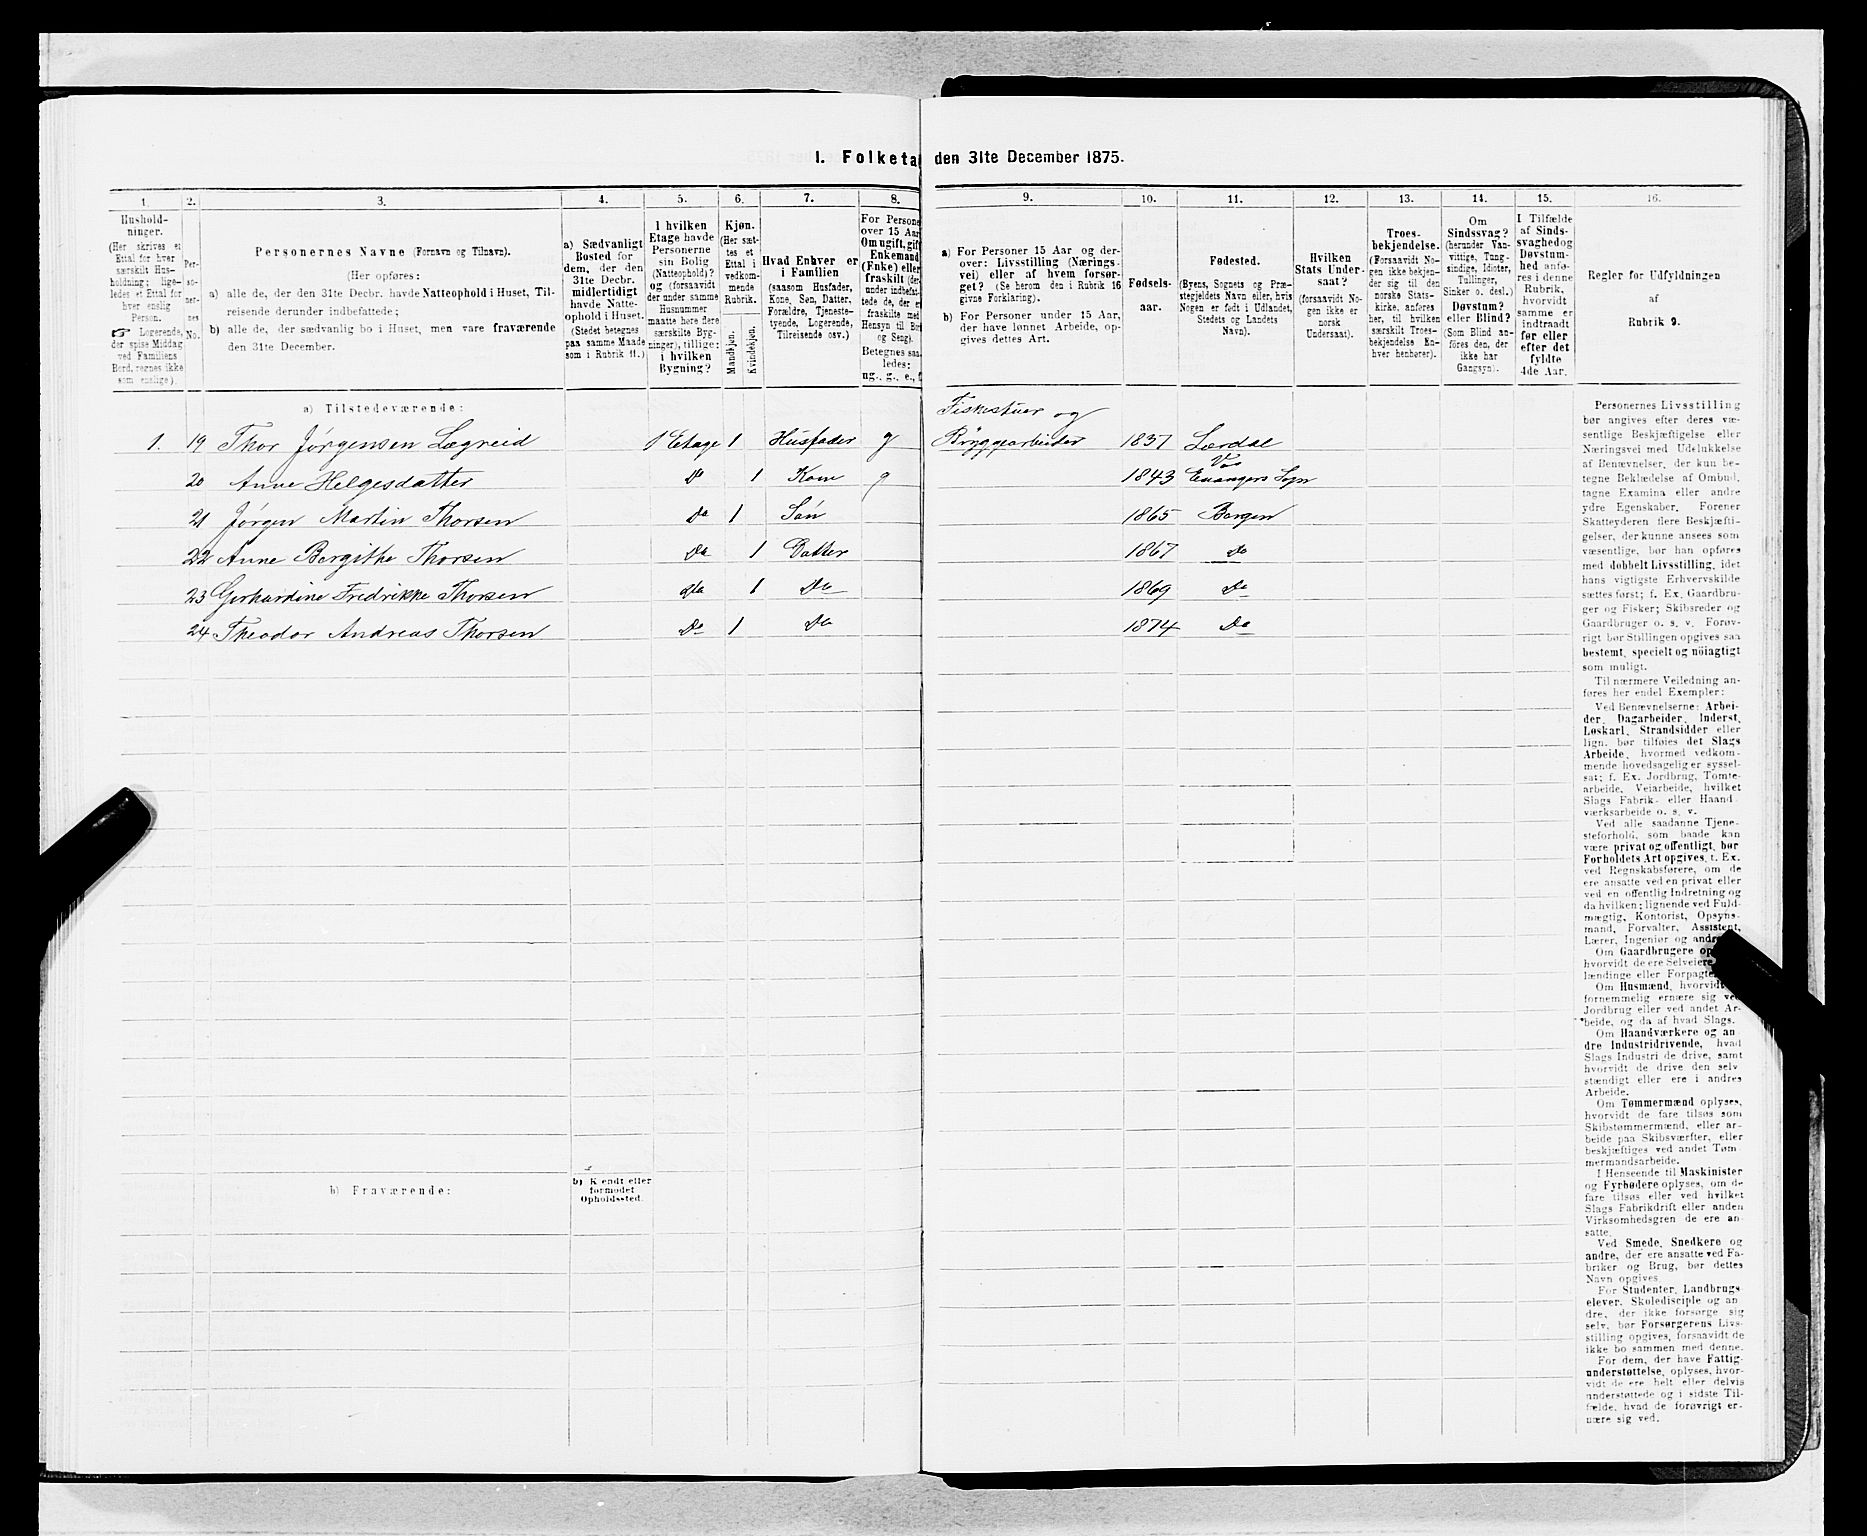 1. Folketa den 31te December 1875.
1. 2. 3. 4. 5. 6. 7. 8. 9. 10. 11. 12. 13. 14. 15. 16.
Hushold-
ninger.
(Her skrives et
Ettal for hver
særskilt Hus-
holdning; lige-
ledes et Ettal for
hver enslig
Person.
☞ Logerende,
der spise Middag
ved Familiens
Bord, regnes ikke
som enslige).
Per-
so-
ner-
nes
No.
Personernes Navne (Fornavn og Tilnavn).
(Her opføres:
a) alle de, der den 31te Decbr. havde Natteophold i Huset, Til-
reisende derunder indbefattede;
b) alle de, der sædvanlig bo i Huset, men vare fraværende
den 31te December.
a) Sædvanligt
Bosted for
dem, der den
31te Decbr.
midlertidigt
havde Natte-
ophold i Huset.
(Stedet betegnes
paa samme Maade
som i Rubrik 11.)
I hvilken
Etage havde
Personerne
sin Bolig
(Natteophold)?
og (forsaavidt
der under samme
Husnummer
maatte høre flere
særskilte Byg-
ninger), tillige:
i hvilken
Bygning?
Kjøn.
(Her sæt-
tes et
Ettal i
vedkom-
mende
Rubrik.
Mandkjøn.
Kvindekjøn.
Hvad Enhver er
i Familien
(saasom Husfader,
Kone, Søn, Datter,
Forældre, Tjeneste-
tyende, Logerende,
Tilreisende osv.)
For Persone
over 15 Aar
Om ugift, gift
Enkemand
(Enke) eller
fraskilt (der
under indbefat-
tede de, der er
fraskilte med
Hensyn til Bor
og Seng).
Betegnes saa
ledes:
ug., g., e., f
a) For Personer 15 Aar og der-
over: Livsstilling (Nærings-
vei) eller af hvem forsør-
get? (Se herom den i Rubrik 16
givne Forklaring).
b) For Personer under 15 Aar,
der have lønnet Arbeide, op-
gives dettes Art.
Fødsels-
aar.
Fødested.
(Byens, Sognets og Præ-
stegjeldets Navn eller, hvis
Nogen er født i Udlandet,
Stedets og Landets
Navn).
Hvilken
Stats Under-
saat?
(forsaavidt No-
gen ikke er
norsk
Undersaat).
Troes-
bekjendelse.
(Forsaavidt No-
gen ikke bekjen-
der sig til den
norske Stats-
kirke, anføres
her, til hvilken
særskilt Troes-
bekjendelse En-
hver henhører).
Om
Sindssvag?
(herunder Van-
vittige, Tung-
sindige, Idioter,
Tullinger,
Sinker o. desl.).
Døvstum?
eller Blind?
(Som Blind an-
føres den, der
ikke har
Gangsyn).
I Tilfælde
af Sinds-
svaghed og
Døvstum-
hed anfø-
res i denne
Rubrik,
hvorvidt
samme er
indtraadt
før eller
efter det
fyldte
4de Aar.
Regler for Udfyldningen
af
Rubrik 9.
a) Tilstedeværende:
Fiskestuer og
1. 19 Thor Jørgensen Lægreid 1 Etage 1 Husfader g Bryggearbeider 1837 Lærdal
Vos
20 Anne Helgesdatter Do 1 Kone g 1843 Evangers Sogn
21 Jørgen Martin Thorsen Do 1 Søn 1865 Bergen
22 Anne Bergithe Thorsen Do 1 Datter 1867 Do
23 Gerhardine Fredrikke Thorsen Do 1 Do 1869 Do
24 Theodor Andreas Thorsen Do 1 Do 1874 Do
b) Fraværende:
b) Kjendt eller
formodet
Opholdssted.
Personernes Livsstilling
bør angives efter deres væ-
sentlige Beskjæftigelse eller
Næringsvei med Udelukkelse
af Benævnelser, der kun be-
tegne Beklædelse af Ombud,
tagne Examina eller andre
ydre Egenskaber. Forener
Skatteyderen flere Beskjæfti-
gelser, der kunne ansees som
væsentlige, bør han opføres
med dobbelt Livsstilling, idet
hans vigtigste Erhvervskilde
sættes først; f. Ex. Gaardbru-
ger og Fisker; Skibsreder og
Gaardbruger o. s. v. Forøv-
rigt bør Stillingen opgives saa
bestemt, specielt og nöiagtigt
som muligt.
Til nærmere Veiledning an-
føres her endel Exempler:
Ved Benævnelserne: Arbei-
der, Dagarbeider, Inderst,
Løskarl, Strandsidder eller
lign. bør tilføies det Slags
Arbeide, hvormed vedkom-
mende hovedsagelig er syssel-
sat; f. Ex. Jordbrug, Tomte-
arbeide, Veiarbeide, hvilket
Slags Fabrik- eller Haand-
værksarbeide o. s. v.
Ved alle saadanne Tjene-
steforhold, som baade kan
være privat og offentligt, bør
Forholdets Art opgives, f. Ex.
ved Regnskabsførere, om de
ere ansatte ved en privat eller
ved en offentlig Indretning og
da hvilken; lignende ved Fuld-
mægtig, Kontorist, Opsyns-
mand, Forvalter, Assistent,
Lærer, Ingeniør og andre
Om Gaardbrugere op
hvorvidt de ere Selveiere
lændinge eller Forpagte
Om Husmænd, hvorvidt
fornemmelig ernære sig ved
Jordbrug eller ved andet Ar-
beide, og da af hvad Slags.
Om Haandværkere og an-
dre Industridrivende, hvad
Slags Industri de drive, samt
hvorvidt de drive den selv-
stændigt eller ere i andres
Arbeide.
Om Tømmermænd oplyses,
hvorvidt de fare tilsøs som
Skibstømmermænd, eller ar-
beide paa Skibsværfter, eller
beskjæftiges ved andet Tøm-
mermandsarbeide.
I Henseende til Maskinister
og Fyrbødere oplyses, om de
fare tilsøs eller ved hvilket
Slags Fabrikdrift eller anden
Virksomhedsgren de ere an-
satte.
Ved Smede, Snedkere og
andre, der ere ansatte ved Fa-
briker og Brug, bør dettes
Navn opgives.
For Studenter, Landbrugs-
elever, Skoledisciple og an-
dre, der ikke forsørge sig
selv, bør Forsørgerens Livs-
stilling opgives, forsaavidt de
ikke bo sammen med denne.
For dem, der have Fattig-
understøttelse, oplyses, hvor-
vidt de ere helt eller delvis
understøttede og i sidste Til-
fælde, hvad de forøvrigt er-
nære sig ved.